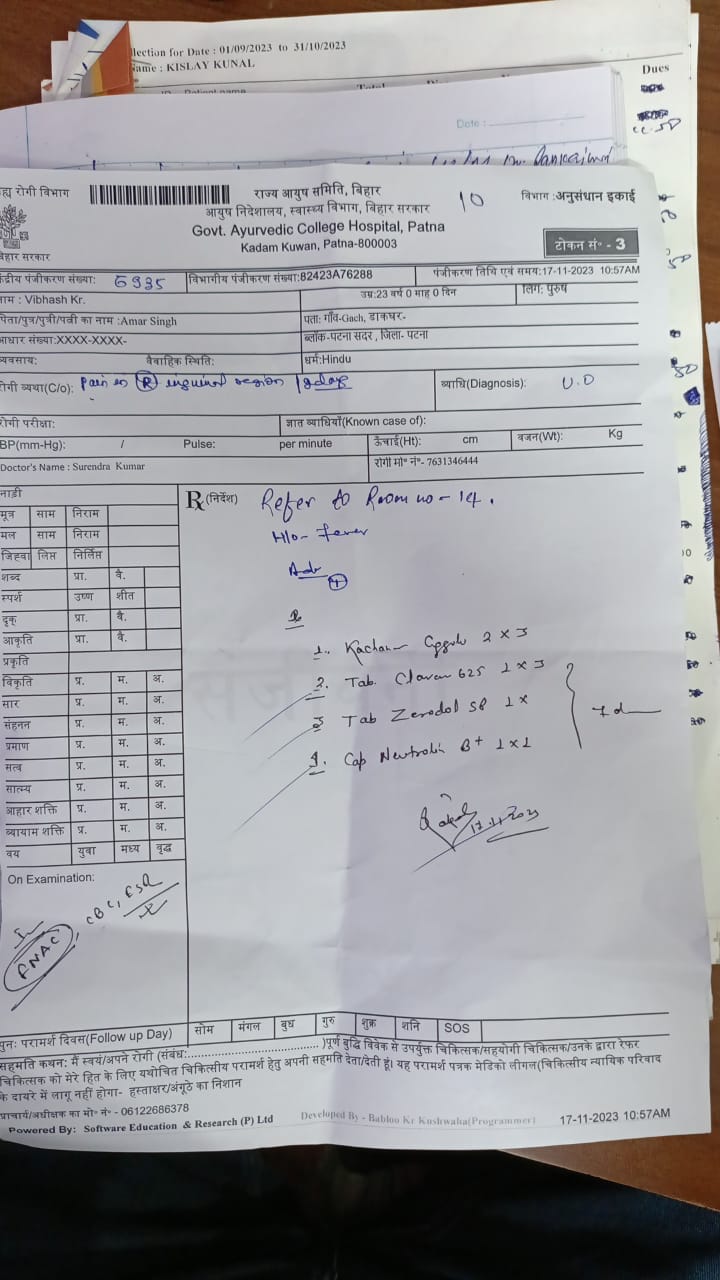 lection for Date : 01/09/2023 to 31/10/2023
ame : KISLAY KUNAL
Patient name
Dues
Date :
ह्य रोगी विभाग
राज्य आयुष समिति, बिहार
10
विभाग :अनुसंधान इकाई
आयुष निदेशालय, स्वास्थ्य विभाग, बिहार सरकार
Govt. Ayurvedic College Hospital, Patna
Kadam Kuwan, Patna-800003
टोकन सं° - 3
बिहार सरकार
केंद्रीय पंजीकरण संख्या: 6935 विभागीय पंजीकरण संख्या:82423A76288 पंजीकरण तिथि एवं समय:17-11-2023 10:57AM
नाम : Vibhash Kr. उम्र:23 वर्ष 0 माह 0 दिन लिंग: पुरुष
पिता/पुत्र/पुत्री/पत्नी का नाम :Amar Singh पता: गाँव-Gach, डाकघर-
आधार संख्या:XXXX-XXXX- ब्लॉक-पटना सदर, जिला- पटना
व्यवसाय: वैवाहिक स्थिति: धर्म:Hindu
रोगी व्यथा(C/o): Pain in (R) inguinal region व्याधि(Diagnosis): U.D
रोगी परीक्षा: ज्ञात व्याधियाँ(Known case of):
BP(mm-Hg): / Pulse: per minute ऊँचाई(Ht): cm वजन(Wt): Kg
Doctor's Name : Surendra Kumar रोगी मो° नं°- 7631346444
नाड़ी
Rx (निर्देश) Refer to Room no - 14.
मूत्र साम निराम
मल साम निराम
H/o - Fever
जिह्वा लिप्त निर्लिप्त
शब्द प्रा. वै.
स्पर्श उष्ण शीत
दृक् प्रा. वै.
आकृति प्रा. वै.
प्रकृति
विकृति प्र. म. अ.
सार प्र. म. अ.
संहनन प्र. म. अ.
प्रमाण प्र. म. अ.
सत्व प्र. म. अ.
सात्म्य प्र. म. अ.
आहार शक्ति प्र. म. अ.
व्यायाम शक्ति प्र. म. अ.
वय युवा मध्य वृद्ध
1. Kachanar Guggulu 2 x 3
2. Tab. Clavam 625 1 x 3
3 Tab Zerodol SP 1 x
4. Cap Neutrolin B+ 1 x 1
7 d
17.11.2023
On Examination:
CBC, ESR
FNAC
पुनः परामर्श दिवस(Follow up Day) सोम मंगल बुध गुरु शुक्र शनि SOS
सहमति कथन: मैं स्वयं/अपने रोगी (संबंध:..............................)पूर्ण बुद्धि विवेक से उपर्युक्त चिकित्सक/सहयोगी चिकित्सक/उनके द्वारा रेफर
चिकित्सक को मेरे हित के लिए यथोचित चिकित्सीय परामर्श हेतु अपनी सहमति देता/देती हूं। यह परामर्श पत्रक मेडिको लीगल(चिकित्सीय न्यायिक परिवाद
के दायरे में लागू नहीं होगा- हस्ताक्षर/अंगूठे का निशान
प्राचार्य/अधीक्षक का मो° नं° - 06122686378
Powered By: Software Education & Research (P) Ltd Developed By - Babloo Kr Kushwaha(Programmer) 17-11-2023 10:57AM